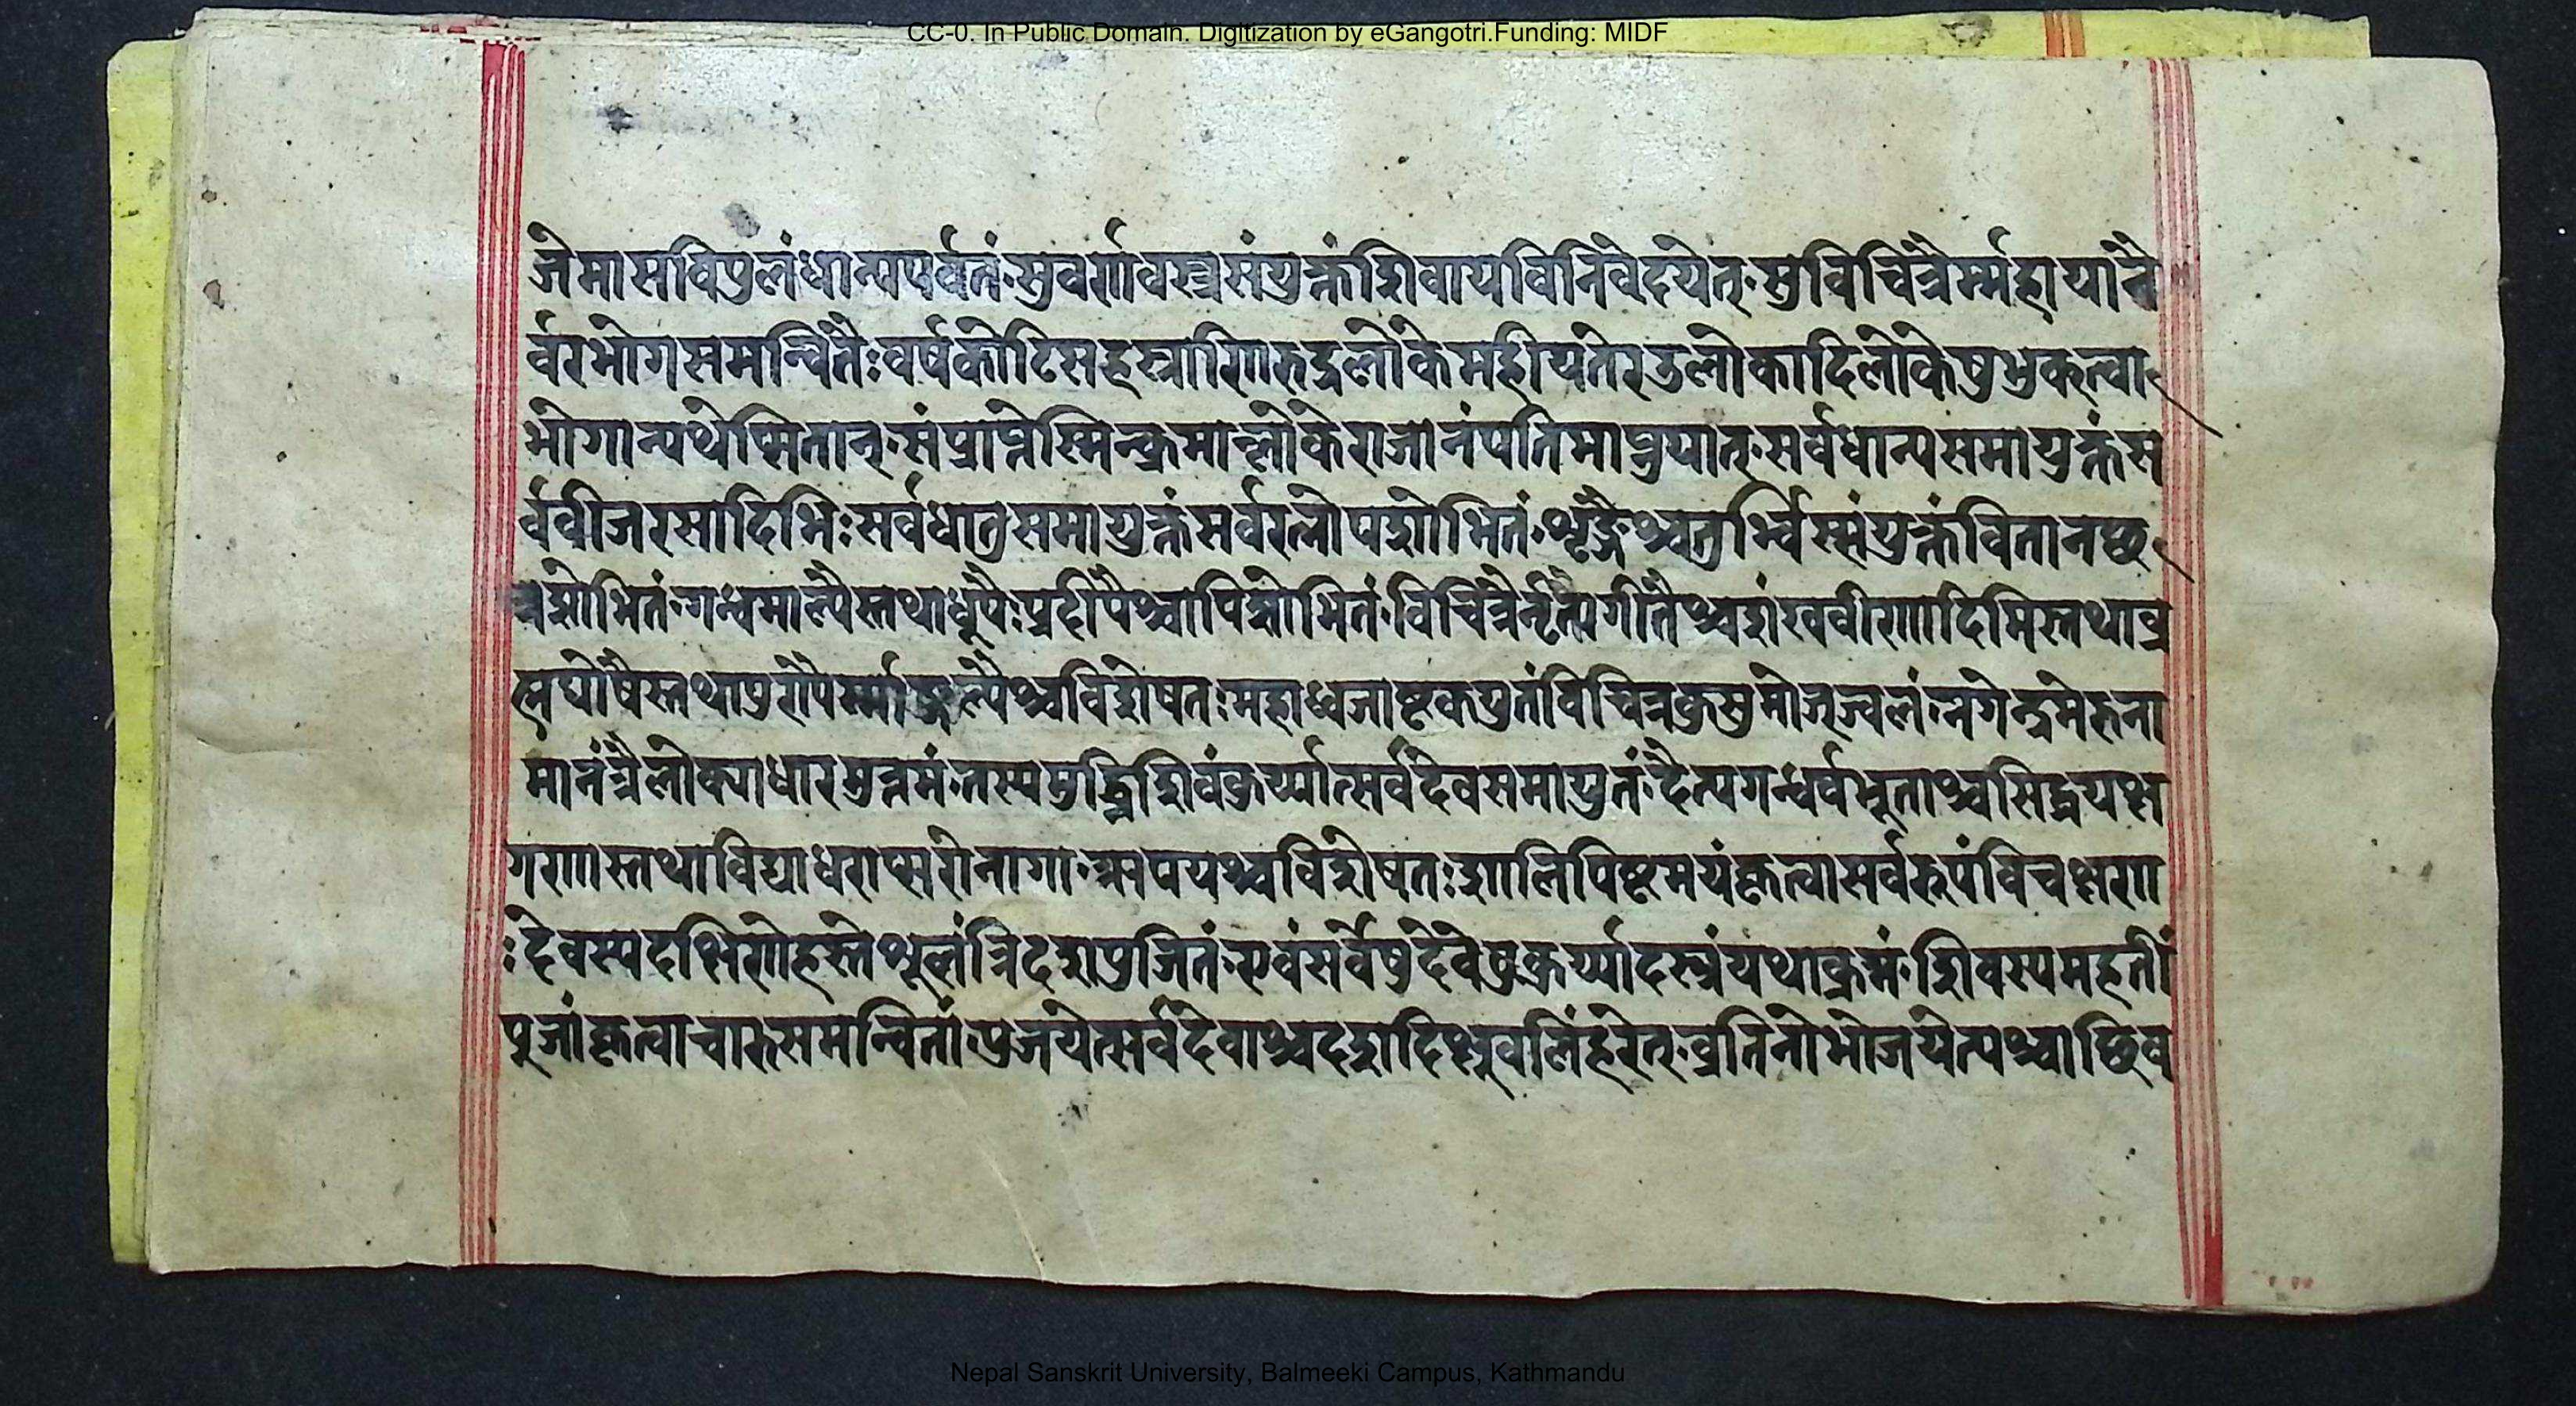 CC-0. In Public Domain. Digitization by eGangotri.Funding: MIDF
जेमासविपुलंधान्यपर्वतं॰सुवर्णवस्त्रसंयुक्तंशिवायविनिवेदयेत्॰सुविचित्रैर्म्महायानै
र्वरभोगसमन्वितैःवर्षकोटिसहस्राणिरुद्रलोकेमहीयतेरुडलोकादिलोकेषुभुक्त्वा
भोगान्यथेप्सितान्॰संप्राप्नेस्मिन्क्रमाल्लोकेराजानंपतिमाप्नुयात्॰सर्वधान्यसमायुक्तंस
र्ववीजरसादिभिःसर्वधातुसमायुक्तंसर्वरत्नोपशोभितं॰शृङ्गैश्चतुर्भ्विस्संयुक्तंवितानछ
त्रशोभितं॰गन्धमाल्यैस्तथाधूपैःप्रदीपैश्चापिशोभितं॰विचित्रैर्नृत्यगीतैश्चशंखवीणादिभिस्तथाव्र
ह्मघोषैस्तथापुण्यैर्म्माङ्गल्यैश्चविशेषतःमहाध्वजाष्टकयुतंविचित्रकुसुमोज्ज्वलं॰नगेन्द्रमेरुना
मानंत्रैलोक्याधारमुत्तमं॰तस्यमुर्द्ध्निशिवंकुर्य्यात्सर्वदेवसमायुतं॰दैत्यगन्धर्वभूताश्चसिद्धयक्ष
गणास्तथाविद्याधराप्सरोनागा॰ऋषयश्चविशेषतःशालिपिष्टमयंकृत्वासर्वरुपंविचक्षण
ःदेवस्यदक्षिणेहस्तेशूलंत्रिदशपुजितं॰एवंसर्वेषुदेवेषुकुर्य्यादस्त्रंयथाक्रमं॰शिवस्यमहतीं
पुजांकृत्वाचारुसमन्वितां॰पुजयेत्सर्वदेवाश्चदशदिक्षुवलिंहरेत्॰व्रतिनोभोजयेत्पश्चाछिव
Nepal Sanskrit University, Balmeeki Campus, Kathmandu